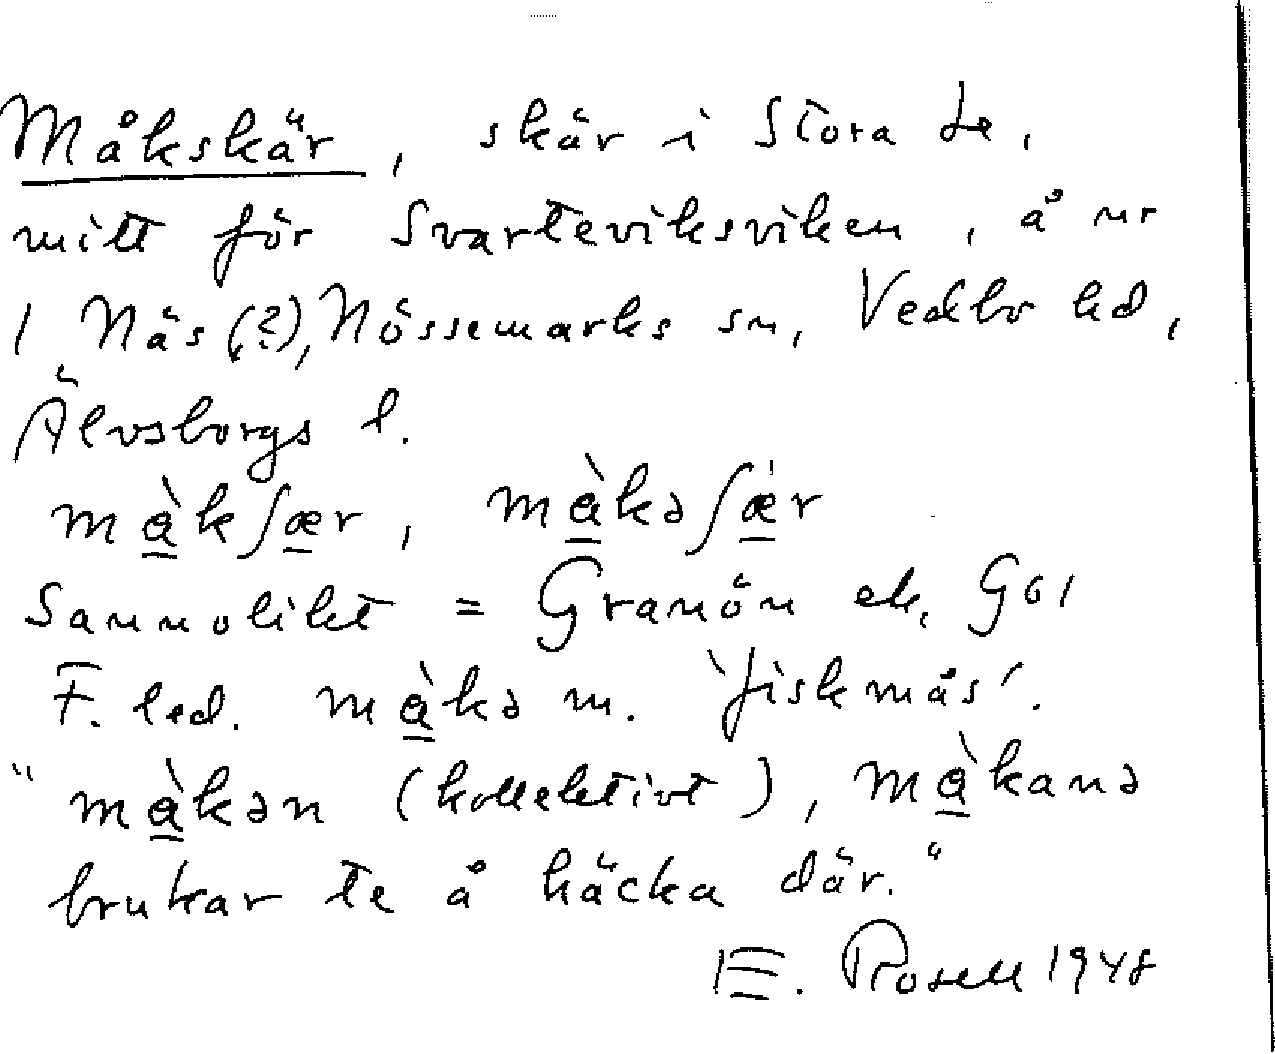 Måkskär, skär i Stora Le,
mitt för Svarteviksviken, å nr
1 Näs (?), Nössemarks sn, Vedbo hd,
Älvsborgs l.
mà̱kʃæ̱r, mà̱kəʃæ̱̍r
Sannolikt = Granön ek. G61
F. led. mà̱kə m. 'fiskmås'.
"mà̱kən (kollektivt), mà̱kanə
brukar te å häcka där."
E. Rosell 1948